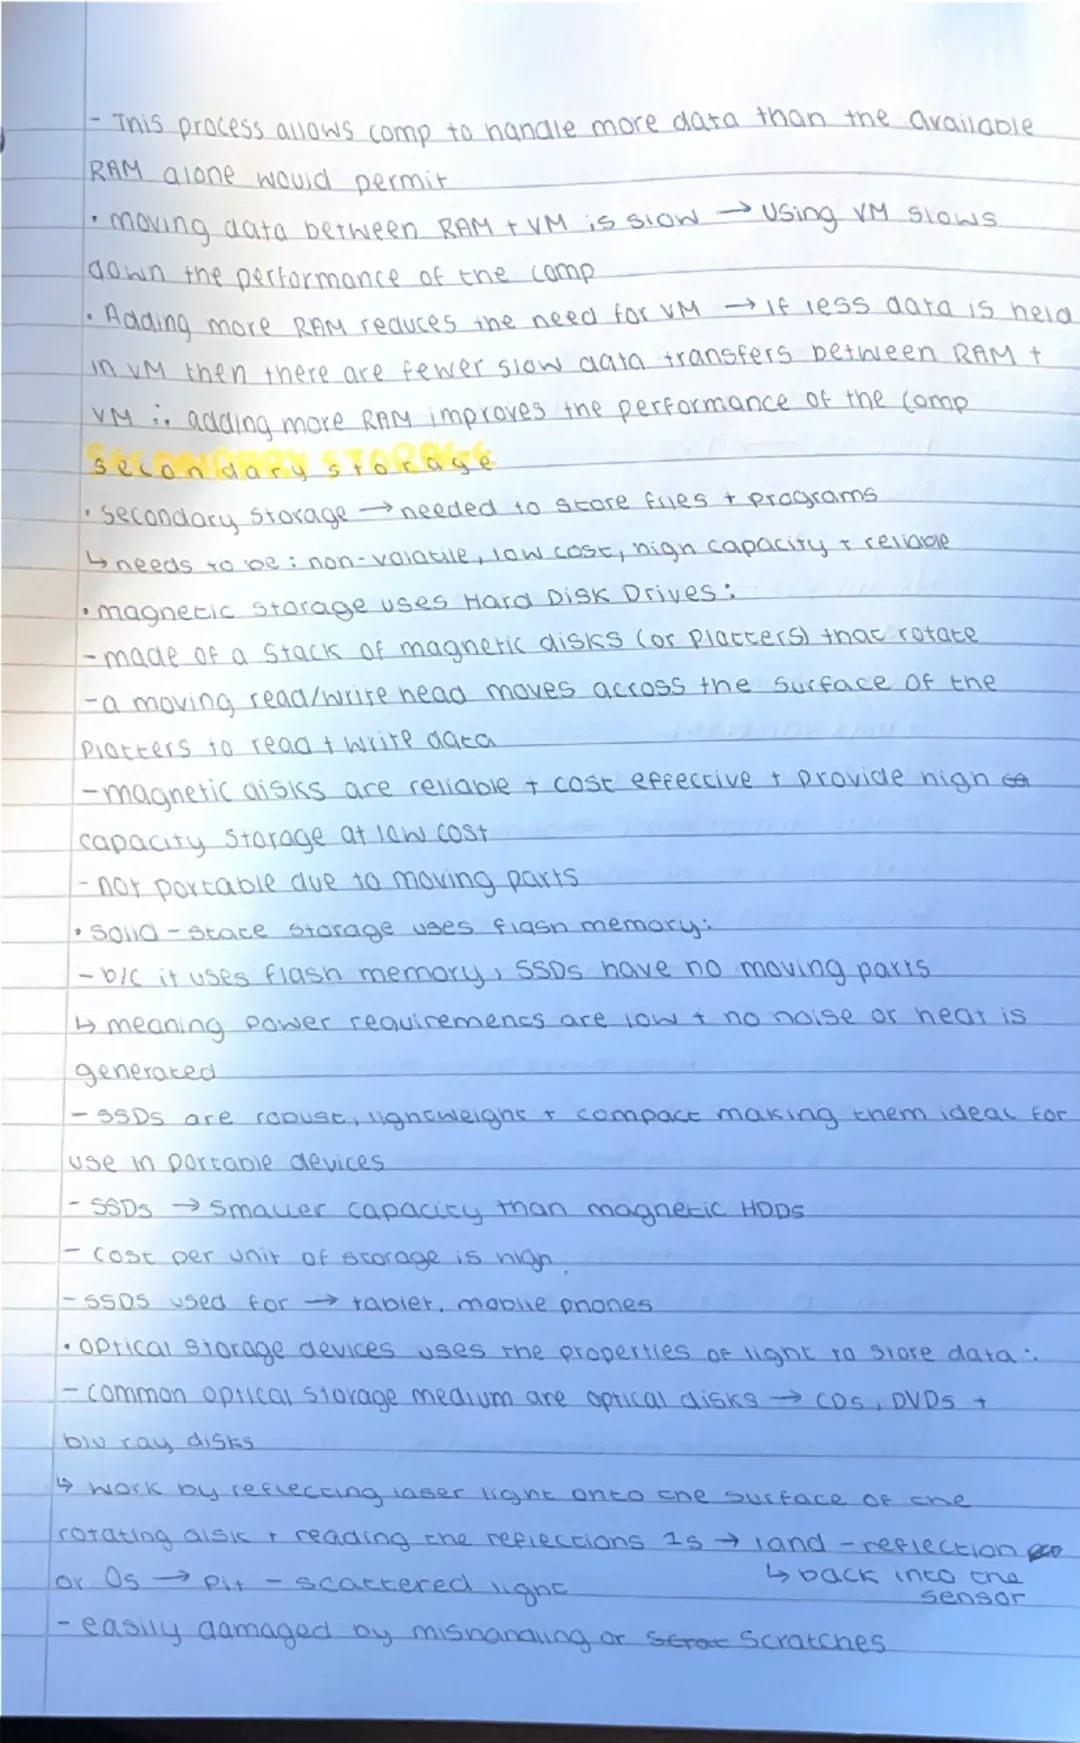 - This process allows comp to handle more data than the available
RAM alone would permit
• moving data between RAM + VM is slow → using VM slows
down the performance of the comp
• Adding more RAM reduces the need for VM → if less data is held
in VM then there are fewer slow data transfers between RAM +
VM ∴ adding more RAM improves the performance of the comp
secondary storage
• secondary storage → needed to store files + programs
↳ needs to be: non-volatile, low cost, high capacity + reliable
• magnetic storage uses Hard Disk Drives:
- made of a stack of magnetic disks (or platters) that rotate
- a moving read/write head moves across the surface of the
platters to read + write data
- magnetic disks are reliable + cost effective + provide high
capacity storage at low cost
- not portable due to moving parts
• solid-state storage uses flash memory:
- b/c it uses flash memory, SSDs have no moving parts
↳ meaning power requirements are low + no noise or heat is
generated
- SSDs are robust, lightweight + compact making them ideal for
use in portable devices
- SSDs → smaller capacity than magnetic HDDs
- cost per unit of storage is high.
- SSDS used for → tablet, mobile phones
• optical storage devices uses the properties of light to store data:
- common optical storage medium are optical disks → CDs, DVDs +
blu ray disks
↳ work by reflecting laser light onto the surface of the
rotating disk + reading the reflections 1s → land - reflection
↳ back into the
sensor
or 0s → pit - scattered light
- easily damaged by mishandling or scratches